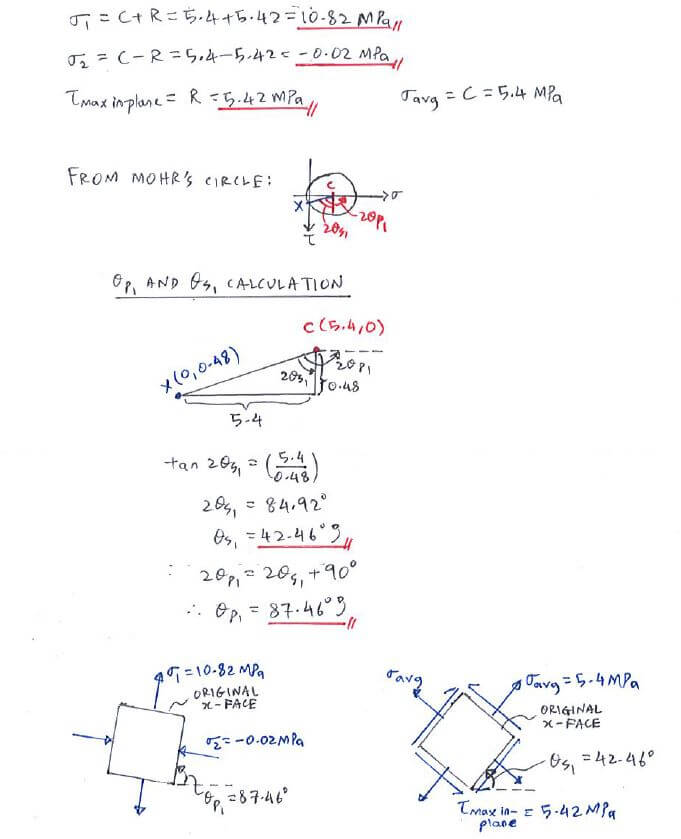 σ₁ = C+R = 5.4+5.42 = 10.82 MPa
σ₂ = C-R = 5.4-5.42 = -0.02 MPa
τmax in-plane = R = 5.42 MPa
σavg = C = 5.4 MPa
FROM MOHR'S CIRCLE:
C
σ
X
2θp₁
2θs₁
τ
θp₁ AND θs₁ CALCULATION
C(5.4,0)
X(0,0.48)
2θp₁
2θs₁
0.48
5.4
tan 2θs₁ = (5.4/0.48)
2θs₁ = 84.92°
θs₁ = 42.46°
2θp₁ = 2θs₁ + 90°
∴ θp₁ = 87.46°
σ₁ = 10.82 MPa
ORIGINAL
x-FACE
σ₂ = -0.02 MPa
θp₁ = 87.46°
σavg
σavg = 5.4 MPa
ORIGINAL
x-FACE
θs₁ = 42.46°
τmax in-plane = 5.42 MPa